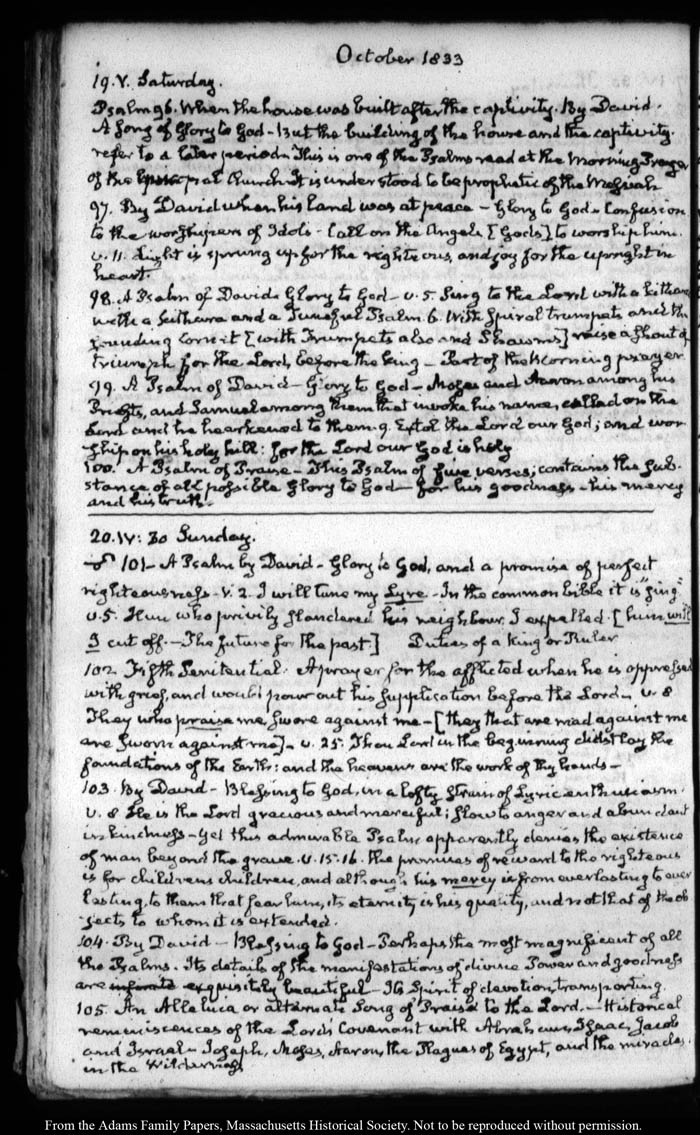 October 1833
19. V. Saturday.
Psalm 96. When the house was built after the captivity. By David.
A Song of Glory to God – But the building of the house and the captivity.
refer to a later period. This is one of the Psalms read at the Morning Prayer
of the Episcopal Church. It is understood to be prophetic of the Messiah
97. By David when his land was at peace – Glory to God. Confusion
to the worshippers of Idols – Call on the Angels [Gods] to worship him.
v. 11. Light is sprung up for the righteous, and joy for the upright in
heart.
98. A Psalm of David. Glory to God – v. 5. Sing to the Lord with a kithara
with a kithara and a Tuneful Psalm. 6. With spiral trumpets and the
sounding Cornet [with Trumpets also and Shawms] raise a shout of
triumph for the Lord, before the king – Part of the Morning prayer
99. A Psalm of David – Glory to God – Moses and Aaron among his
Priests, and Samuel among them that invoke his name, called on the
Lord and he hearkened to them. 9. Extol the Lord our God; and wor-
ship on his holy hill: for the Lord our God is holy
100. A Psalm of Praise – This Psalm of five verses, contains the sub-
stance of all possible Glory to God – for his goodness – his mercy
and his truth.
20. IV: 30 Sunday.
101 – A Psalm by David – Glory to God, and a promise of perfect
righteousness – v. 2. I will tune my Lyre – In the common bible it is "sing"
v. 5. Him who privily slandered his neighbour I expelled. [him will
I cut off. – The future for the past.] Duties of a King or Ruler
102. Fifth Penitential. A prayer for the afflicted when he is oppressed
with grief, and would pour out his supplication before the Lord – v. 8
They who praise me, swore against me – [they that are mad against me
are sworn against me] – v. 25. Thou Lord in the beginning didst lay the
foundations of the Earth: and the heavens are the work of thy hands –
103. By David – Blessing to God, in a lofty strain of Lyric enthusiasm.
v. 8 He is the Lord gracious and merciful; slow to anger and abundant
in kindness – Yet this admirable Psalm apparently denies the existence
of man beyond the grave. v. 15. 16. the promises of reward to the righteous
is for childrens children, and although his mercy is from everlasting to ever
lasting, to them that fear him, its eternity is his quality, and not that of the ob
jects to whom it is extended.
104. By David – Blessing to God – Perhaps the most magnificent of all
the Psalms. Its details of the manifestations of divine Power and goodness
are exquisitely beautiful – Its Spirit of devotion, transporting.
105. An Alleluia or alternate Song of Praise to the Lord. – Historical
reminiscences of the Lord's Covenant with Abraham, Isaac, Jacob
and Israel – Joseph, Moses, Aaron, the Plagues of Egypt, and the miracles
in the Wilderness
From the Adams Family Papers, Massachusetts Historical Society. Not to be reproduced without permission.